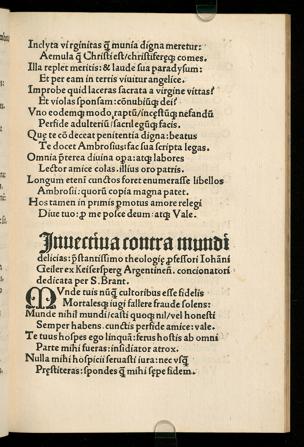 Inclyta virginitas q̃ munia digna meretur:
Aemula q̃ Christi est/christiferęq; comes.
Illa replet meritis: & laude sua paradysum:
Et per eam in terris viuitur angelice.
Improbe quid laceras sacrata a virgine vittas?
Et violas sponsam: cōnubiūq; dei?
Vno eodemq; modo, raptū/incestūq; nefandū
Perfide adulteriū/sacrilegūq; facis.
Quę te cō deceat penitentia digna: beatus
Te docet Ambrosius: fac sua scripta legas.
Omnia p̃terea diuina opa: atq; labores
Lector amice colas. illius oro patris.
Longum etenī cunctos foret enumerasse libellos
Ambrosii: quorū copia magna patet.
Hos tamen in primis p̱motus amore relegi
Diue tuo: p̱ me posce deum: atq; Vale.
Inuectiua contra mundi
delicias: p̃stantissimo theologię p̱fessori Iohāni
Geiler ex Keisersperg Argentineñ. concionatori
dedicata per S. Brant.
MVnde tuis nūq̃ cultoribus esse fidelis
Mortalesq; iugi fallere fraude solens:
Munde nihil mundi/casti quoq; nil/vel honesti
Semper habens. cunctis perfide amice: vale.
Te tuus hospes ego linquā: ferus hostis ab omni
Parte mihi fueras: insidiator atrox.
Nulla mihi hospicii seruasti iura: nec vsq̃
Pręstiteras: spondes q̃ mihi sępe fidem.